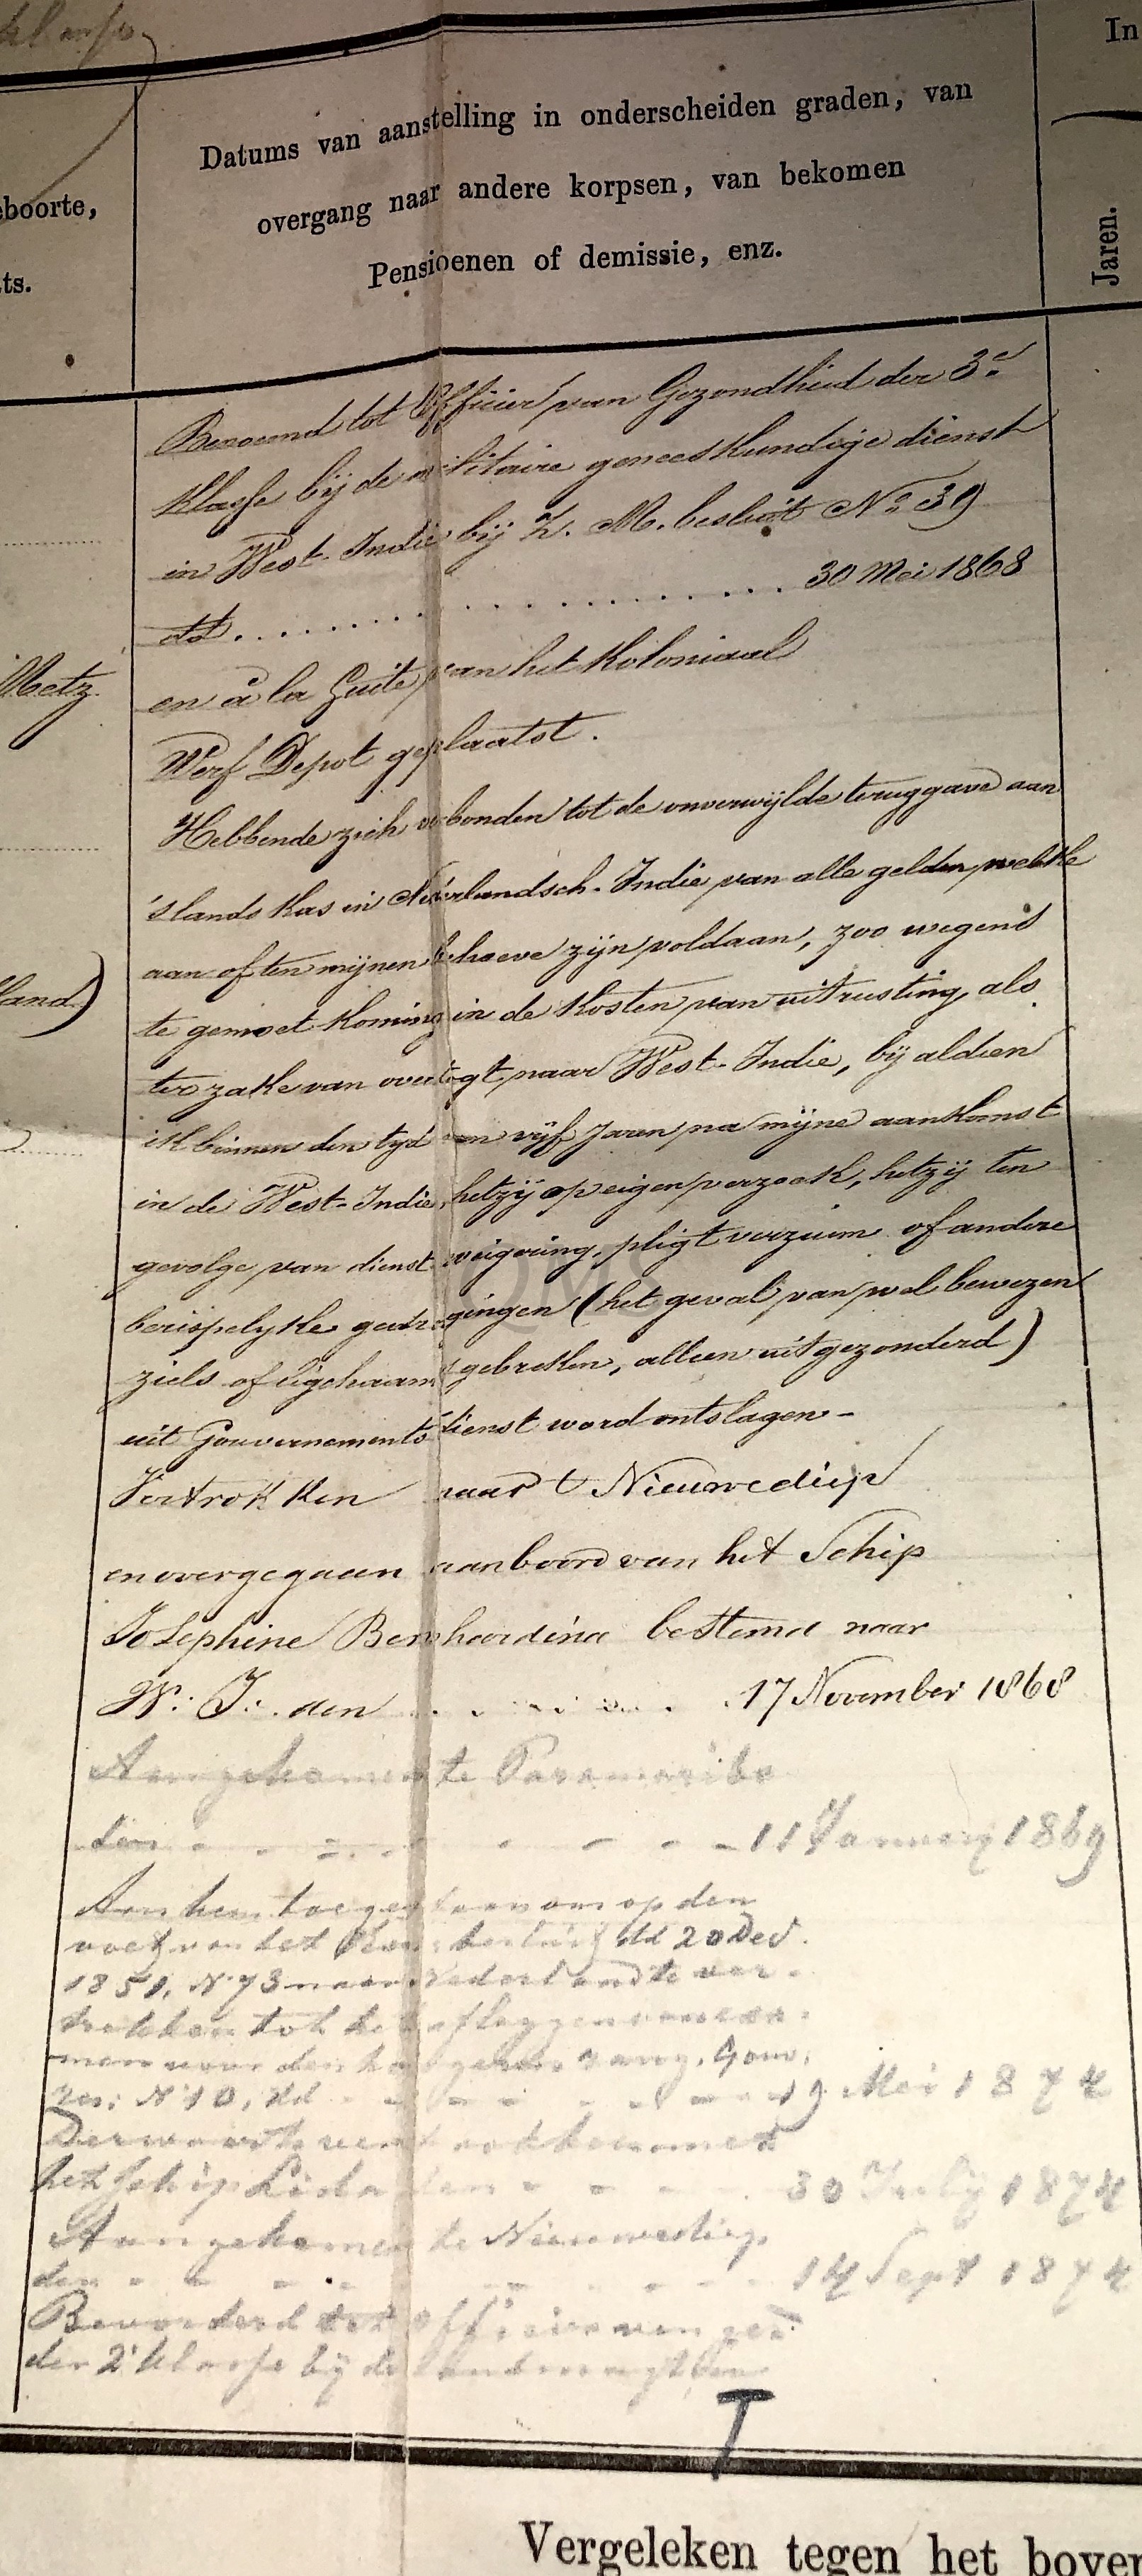 klasse
In
Datums van aanstelling in onderscheiden graden, van
overgang naar andere korpsen, van bekomen
Pensioenen of demissie, enz.
eboorte,
ts.
Jaren.
Benoemd tot Officier van Gezondheid der 3e
klasse bij de militaire geneeskundige dienst
in West-Indië bij Z. M. besluit No 39
dd. . . . . . . . . . . . . . . 30 Mei 1868
en à la Suite van het Koloniaal
Metz.
Werf Depot geplaatst.
Hebbende zich verbonden tot de onverwijlde teruggave aan
's lands kas in Nederlandsch-Indie van alle gelden welke
aan of ten mijnen behoeve zijn voldaan, zoo wegens
land)
te gemoet koming in de kosten van uitrusting, als
ter zake van overtogt naar West-Indie, bij aldien
ik binnen den tijd van vijf Jaren na mijne aankomst
in de West-Indie, hetzij op eigen verzoek, hetzij ten
gevolge van dienst weigering, pligt verzuim of andere
berispelijke gedragingen (het geval van wel bewezen
ziels of ligchaams gebreken, alleen uitgezonderd)
uit Gouvernements dienst word ontslagen -
Vertrokken naar 't Nieuwediep
en overgegaan aan boord van het Schip
Josephine Bernhardina bestemd naar
W: I: den . . . . . . 17 November 1868
Aangekomen te Paramaribo
den - - - - - - 11 January 1869
Aan hem toegestaan om op den
voet van het Kon: besluit dd 20 Dec.
1851, No 73 naar Nederland te ver-
trekken tot het afleggen van exa-
men voor den hoogeren rang, Gouv:
res: No 10, dd - - - - - 19 Mei 1874
Derwaarts vertrokken met
het schip Lida den - - - 30 July 1874
Aangekomen te Nieuwediep
den - - - - - - - 14 Sept 1874
Bevorderd tot officier van gez:
der 2e klasse bij de landmagt
T
QMS
Vergeleken tegen het boven